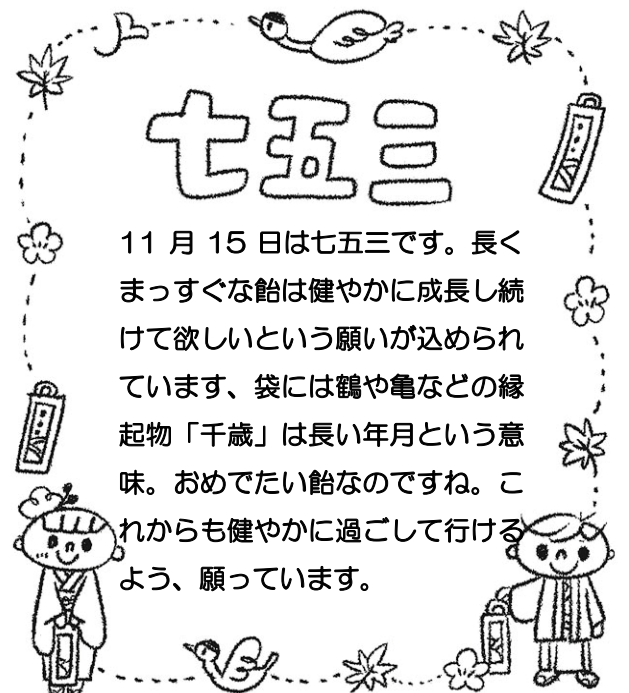 七五三
11 月 15 日は七五三です。長く
まっすぐな飴は健やかに成長し続
けて欲しいという願いが込められ
ています、袋には鶴や亀などの縁
起物「千歳」は長い年月という意
味。おめでたい飴なのですね。こ
れからも健やかに過ごして行ける
よう、願っています。